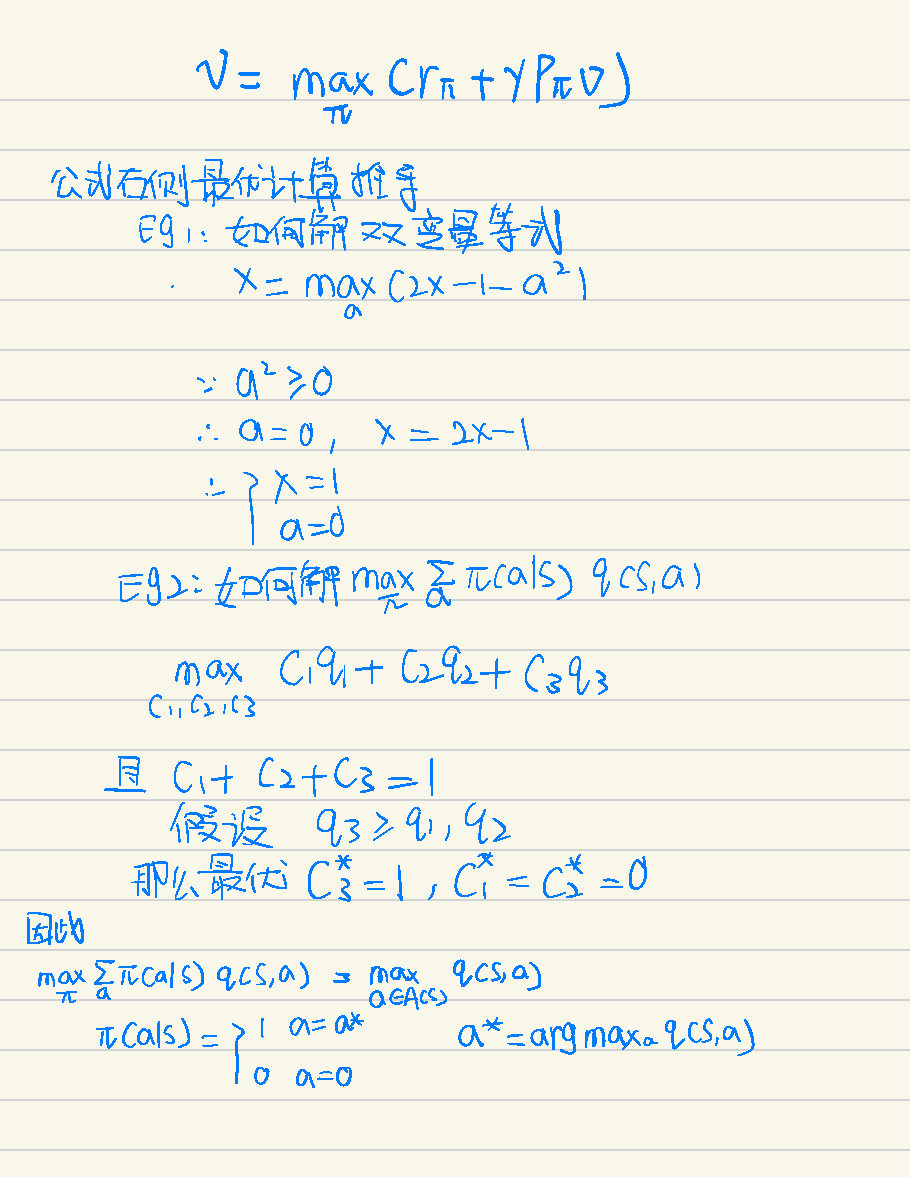 v = max_π (rπ + γPπv)
公式右侧最优计算推导
Eg1: 如何解双变量等式
x = max_a (2x-1-a²)
∵ a² ≥ 0
∴ a = 0, x = 2x-1
∴ { x = 1
a = 0
Eg2: 如何解 max_π ∑_a π(a|s) q(s,a)
max_{C1,C2,C3} C1q1 + C2q2 + C3q3
且 C1 + C2 + C3 = 1
假设 q3 ≥ q1, q2
那么最优 C3* = 1, C1* = C2* = 0
因此
max_π ∑_a π(a|s) q(s,a) = max_{a∈A(s)} q(s,a)
π(a|s) = { 1 a = a* a* = arg max_a q(s,a)
0 a = 0